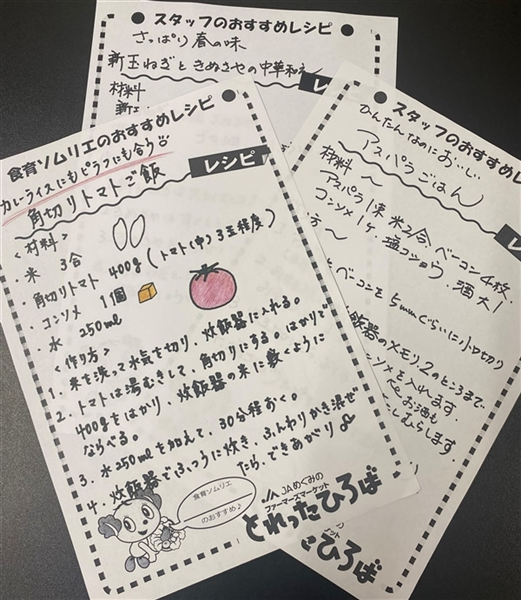 スタッフのおすすめレシピ
さっぱり春の味
新玉ねぎときぬさやの中華和え
材料
新玉
食育ソムリエのおすすめレシピ
カレーライスにもピラフにも合う
レシピ
角切りトマトご飯
<材料>
・米 3合
・角切りトマト 400g(トマト(中)3玉程度)
・コンソメ 1個
水 250ml
<作り方>
1. 米を洗って水気を切り、炊飯器に入れる。
2. トマトは湯むきして、角切りにする。はかりで
400gをはかり、炊飯器の米に敷くように
ならべる。
3. 水250mlを加えて、30分程おく。
4. 炊飯器でふつうに炊き、ふんわりかき混ぜ
たら、できあがり
食育ソムリエ
のおすすめ♪
JAめぐみの
ファーマーズマーケット
とれったひろば
スタッフのおすすめレ
かんたんなのにお〜いしい
アスパラごはん
材料〜
アスパラ1束 米2合、ベーコン4枚、
コンソメ1ケ 塩コショウ、酒大1
方〜
とベーコンを5mmぐらいに小口切り
飯器のメモリ2のところまで
ンソメを入れます。
お酒も
しむらします。
ット
こひろば